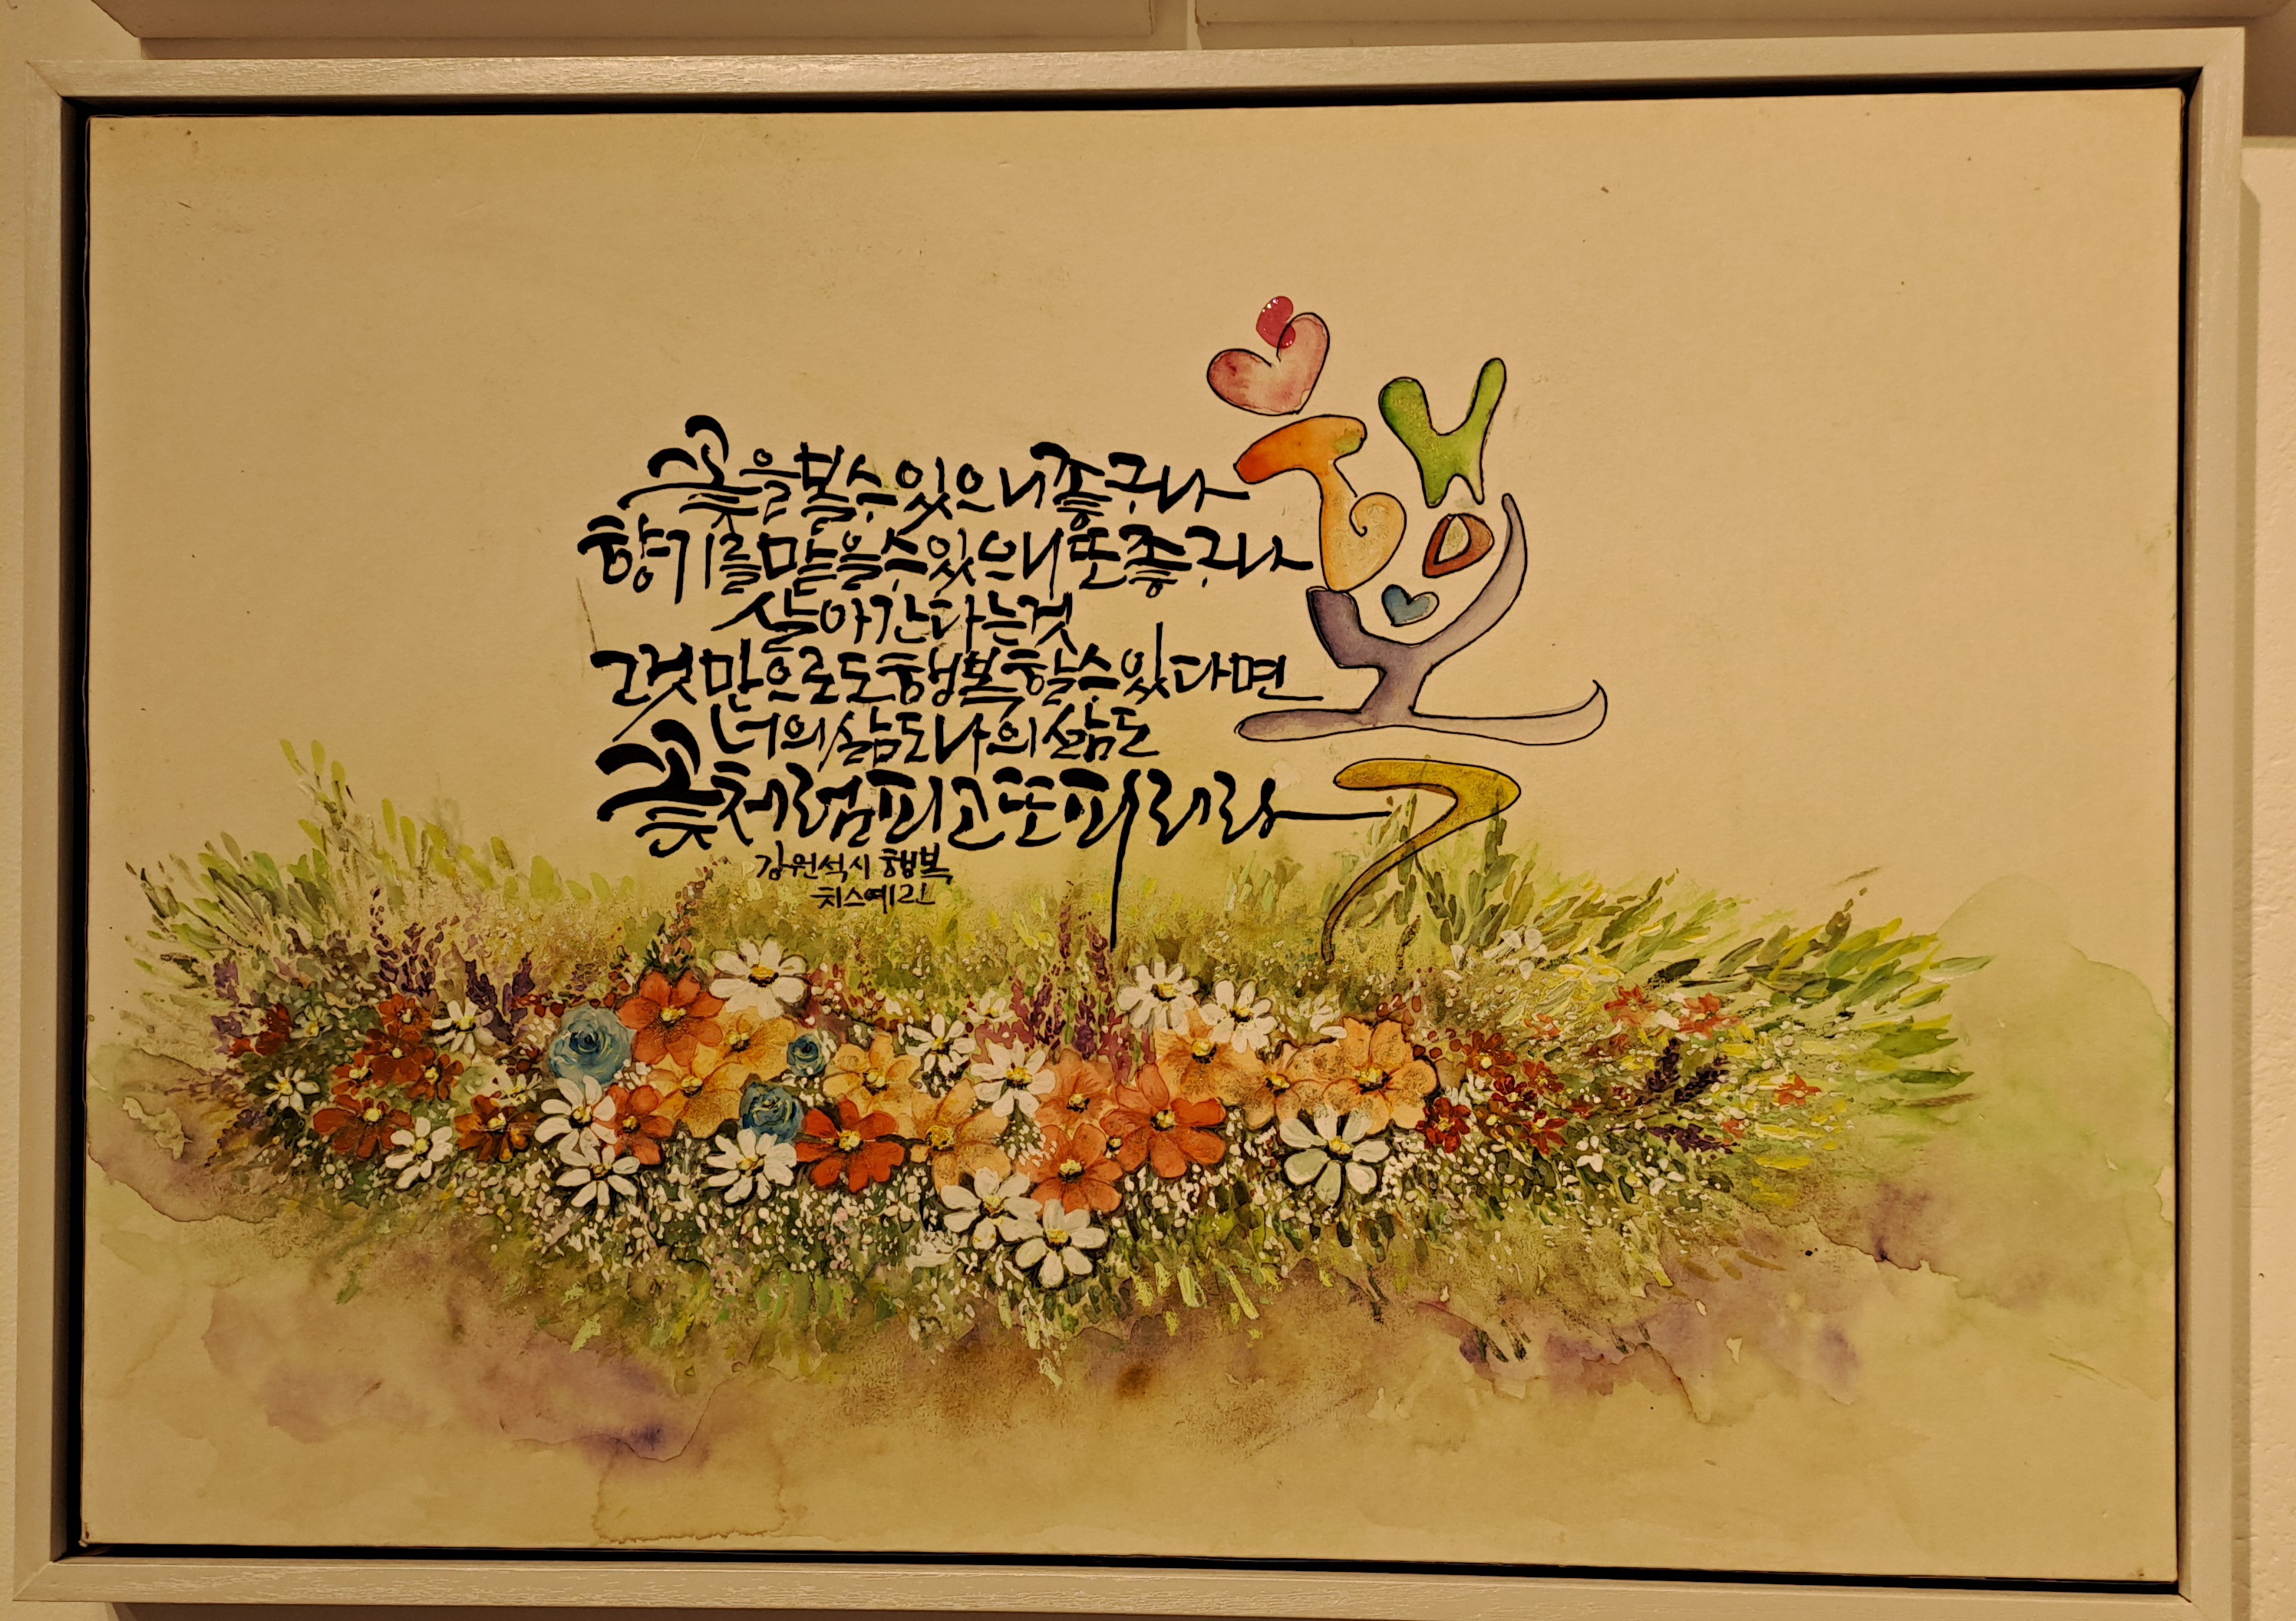 행복
꽃을 볼 수 있으니 좋구나
향기를 맡을 수 있으니 또 좋구나
살아간다는 것
그것만으로도 행복할 수 있다면
너의 삶도 나의 삶도
꽃처럼 피고 또 피리라
강원석 시 행복
치스예린